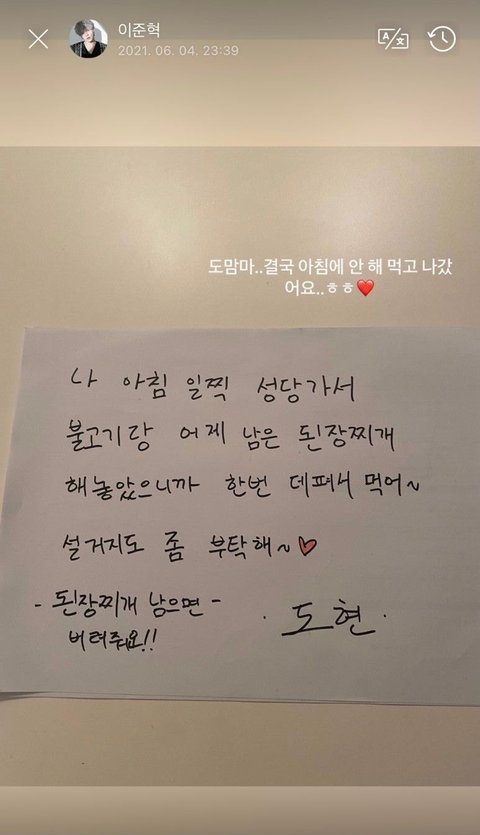 이준혁
2021. 06. 04. 23:39
도맘마..결국 아침에 안 해 먹고 나갔
어요..ㅎㅎ❤️
나 아침 일찍 성당가서
불고기랑 어제 남은 된장찌개
해놓았으니까 한번 데펴서 먹어~
설거지도 좀 부탁해~♡
- 된장찌개 남으면 -
버려줘요!!
· 도현 ·